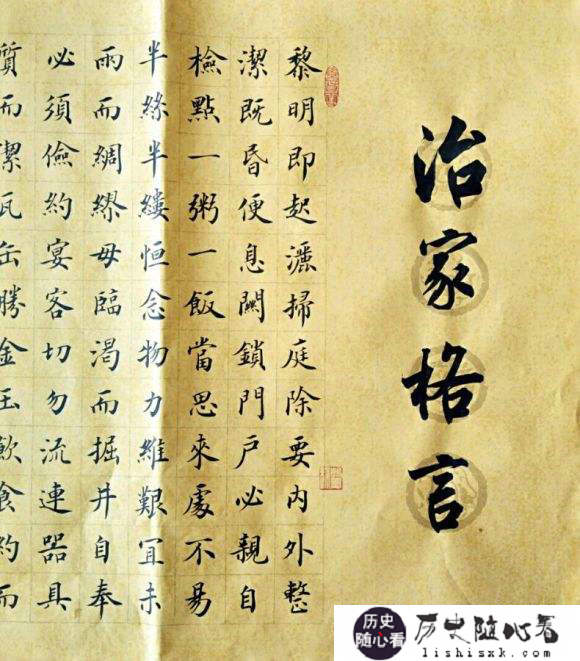 治家格言
黎明即起灑掃庭除要內外整
潔既昏便息關鎖門戶必親自
檢點一粥一飯當思來處不易
半絲半縷恒念物力維艱宜未
雨而綢繆毋臨渴而掘井自奉
必須儉約宴客切勿流連器具
質而潔瓦缶勝金玉飲食約而
历史
随心看
历史随心看
lishisxk.com